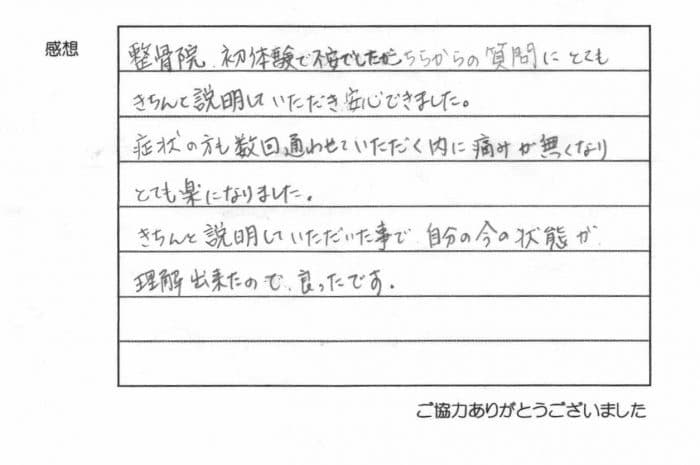 感想
整骨院、初体験で不安でしたがこちらからの質問にとても
きちんと説明していただき安心できました。
症状の方も数回通わせていただく内に痛みが無くなり
とても楽になりました。
きちんと説明していただいた事で、自分の今の状態が
理解出来たので、良ったです。
ご協力ありがとうございました